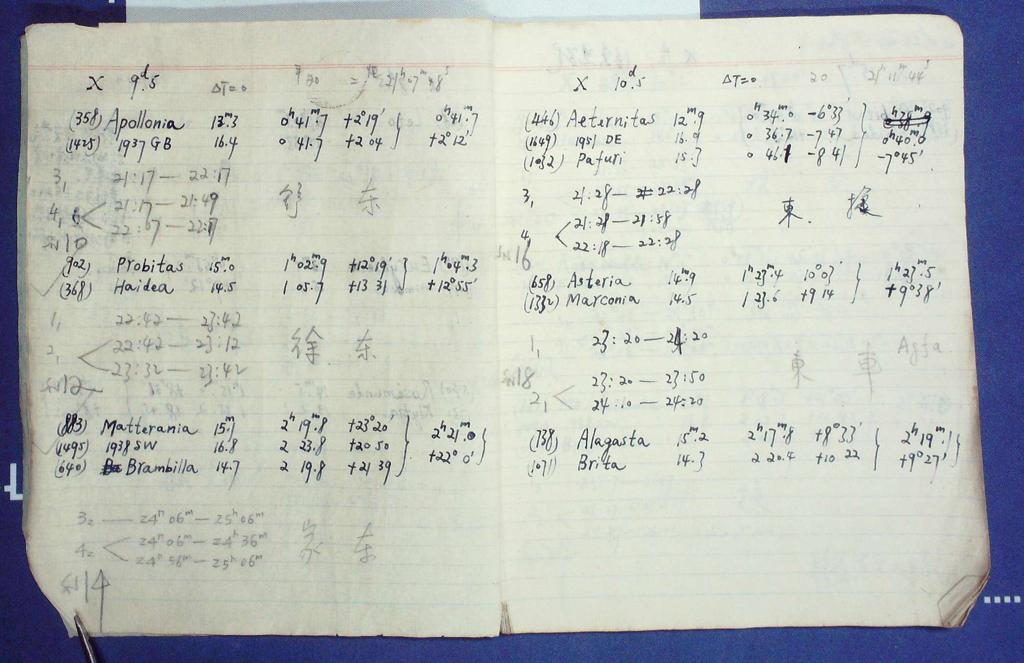 X 9ᵈ.5 ΔT=0 平20 = 21ʰ07ᵐ48ˢ
(358) Apollonia 13ᵐ.3 0ʰ41ᵐ.7 +2°19′ 0ʰ41ᵐ.7
(1425) 1937 GB 16.4 0 41.7 +2 04 +2°12′
3₁ 21:17 — 22:17
4₁ 21:17 — 21:49 舒 东
22:07 — 22:17
10
(902) Probitas 15ᵐ.0 1ʰ02ᵐ.9 +12°19′ 1ʰ04ᵐ.3
(368) Haidea 14.5 1 05.7 +13 31 +12°55′
1₁ 22:42 — 23:42
2₁ 22:42 — 23:12 徐 东
23:32 — 23:42
12
(883) Matterania 15ᵐ.1 2ʰ19ᵐ.8 +23°20 2ʰ21ᵐ.0
(1495) 1938 SW 16.8 2 23.8 +20 50 +22°0′
(640) Brambilla 14.7 2 19.8 +21 39
3₂ — 24ʰ06ᵐ — 25ʰ06ᵐ
4₂ 24ʰ06ᵐ — 24ʰ36ᵐ 东
24ʰ56ᵐ — 25ʰ06ᵐ
14
X 10ᵈ.5 ΔT=0 20 21ʰ11ᵐ44ˢ
(446) Aeternitas 12ᵐ.9 0ʰ34ᵐ.0 -6°33′
(1649) 1951 DE 16.9 0 36.7 -7 47 0ʰ40ᵐ.0
(1032) Pafuri 15.7 0 46.1 -8 41 -7°45′
3₁ 21:28 — 22:28
4₁ 21:28 — 21:58 東.
22:18 — 22:28
16
(658) Asteria 14ᵐ.9 1ʰ23ᵐ.4 10°03′ 1ʰ23ᵐ.5
(1332) Marconia 14.5 1 23.6 +9 14 +9°38′
1₁ 23:20 — 24:20
東 車 Agfa
23:20 — 23:50
18
2₁ 24:10 — 24:20
(738) Alagasta 15ᵐ.2 2ʰ17ᵐ.8 +8°33′ 2ʰ19ᵐ.1
(1071) Brita 14.3 2 20.4 +10 22 +9°27′